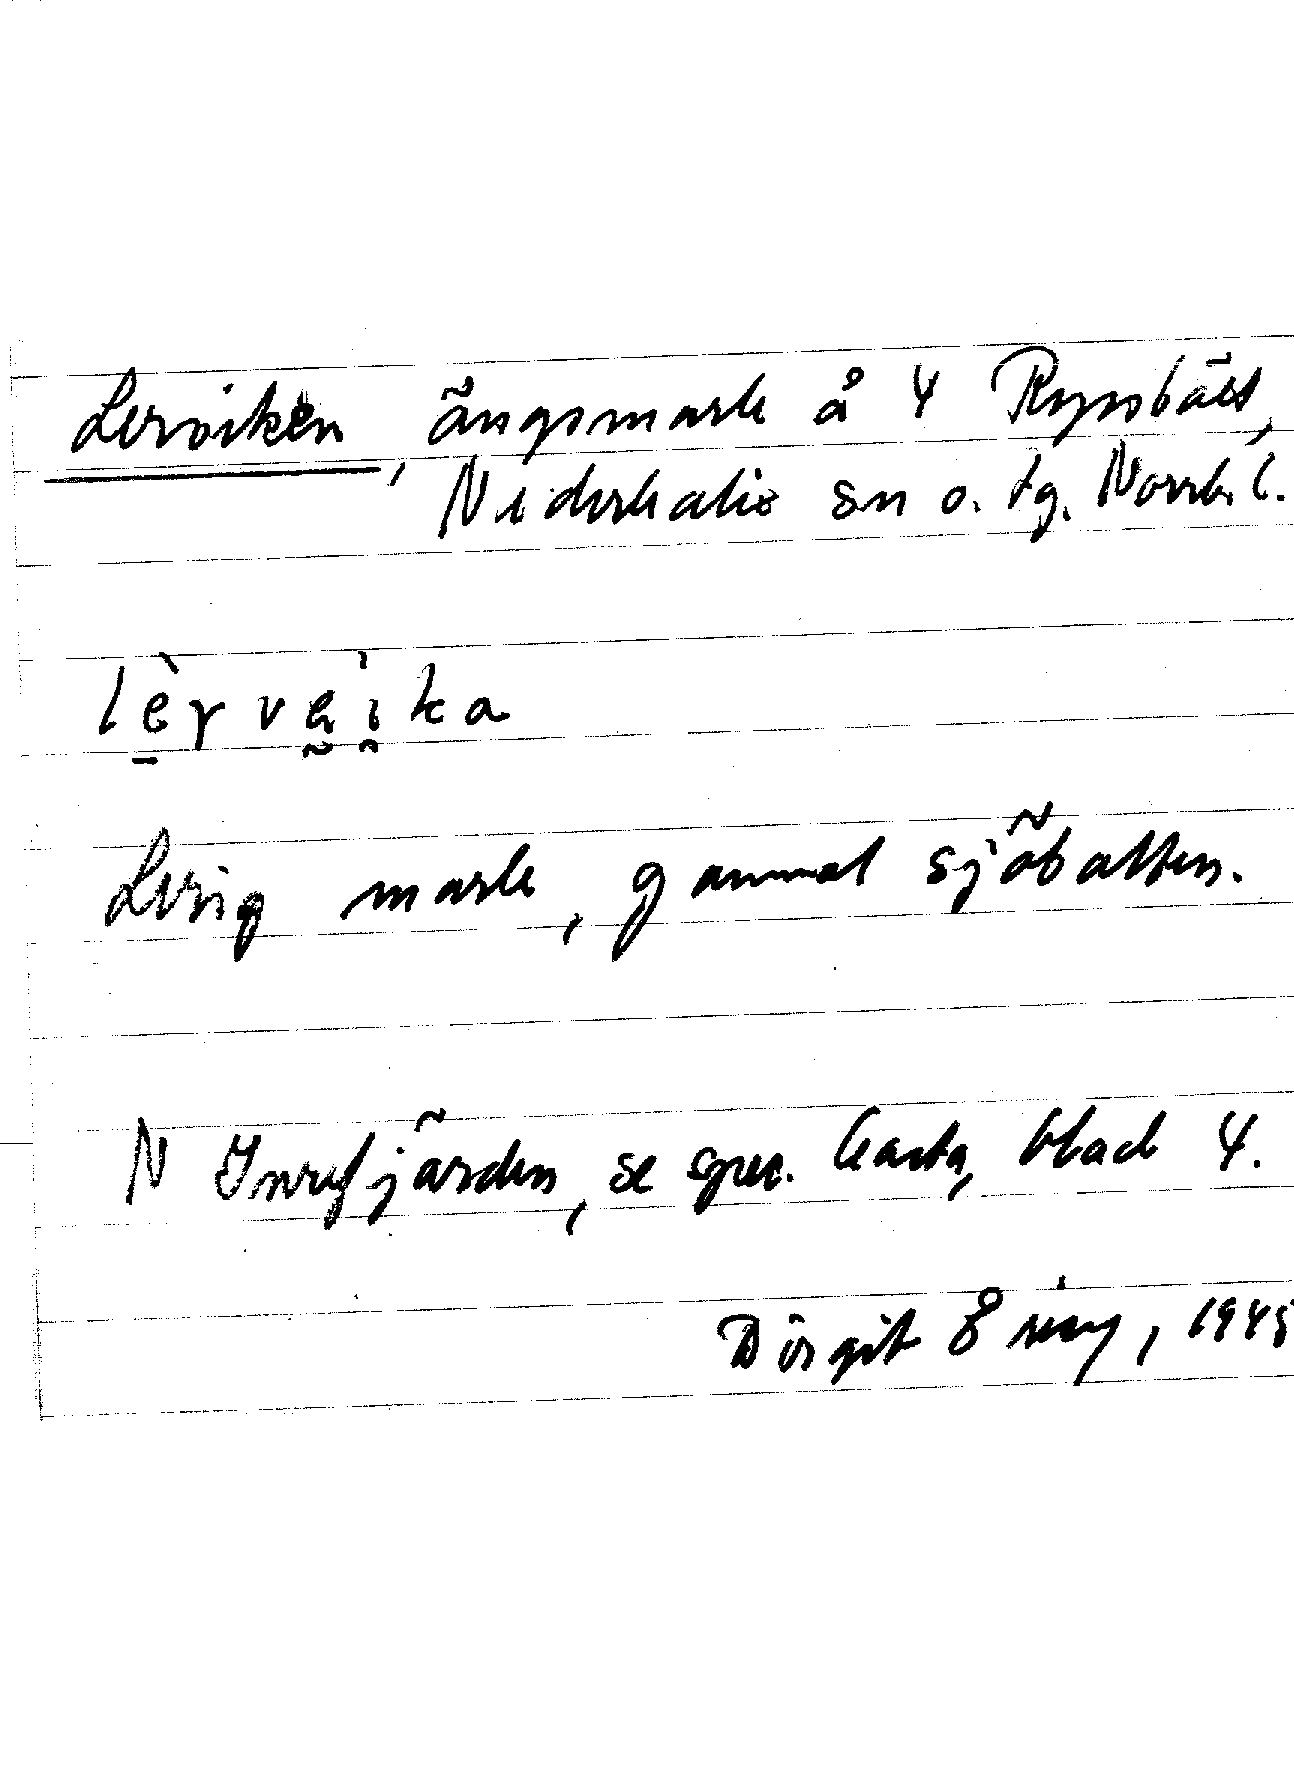 Lerviken, ängsmark å 4 Ryssbält,
Nederkalix sn o. tg. Norrb. l.
lèrvèika
Lerig mark, gammal sjöbotten.
N Inrefjärden, se spec. karta, blad 4.
Birgit 1945